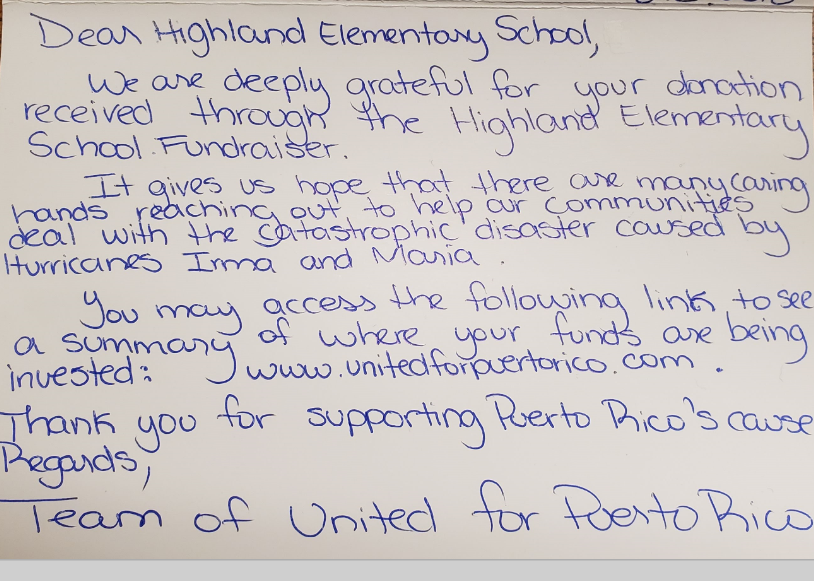 Dear Highland Elementary School,
We are deeply grateful for your donation
received through the Highland Elementary
School Fundraiser.
It gives us hope that there are many caring
hands reaching out to help our communities
deal with the catastrophic disaster caused by
Hurricanes Irma and Maria.
You may access the following link to see
a summary of where your funds are being
invested: www.unitedforpuertorico.com.
Thank you for supporting Puerto Rico's cause
Regards,
Team of United for Puerto Rico